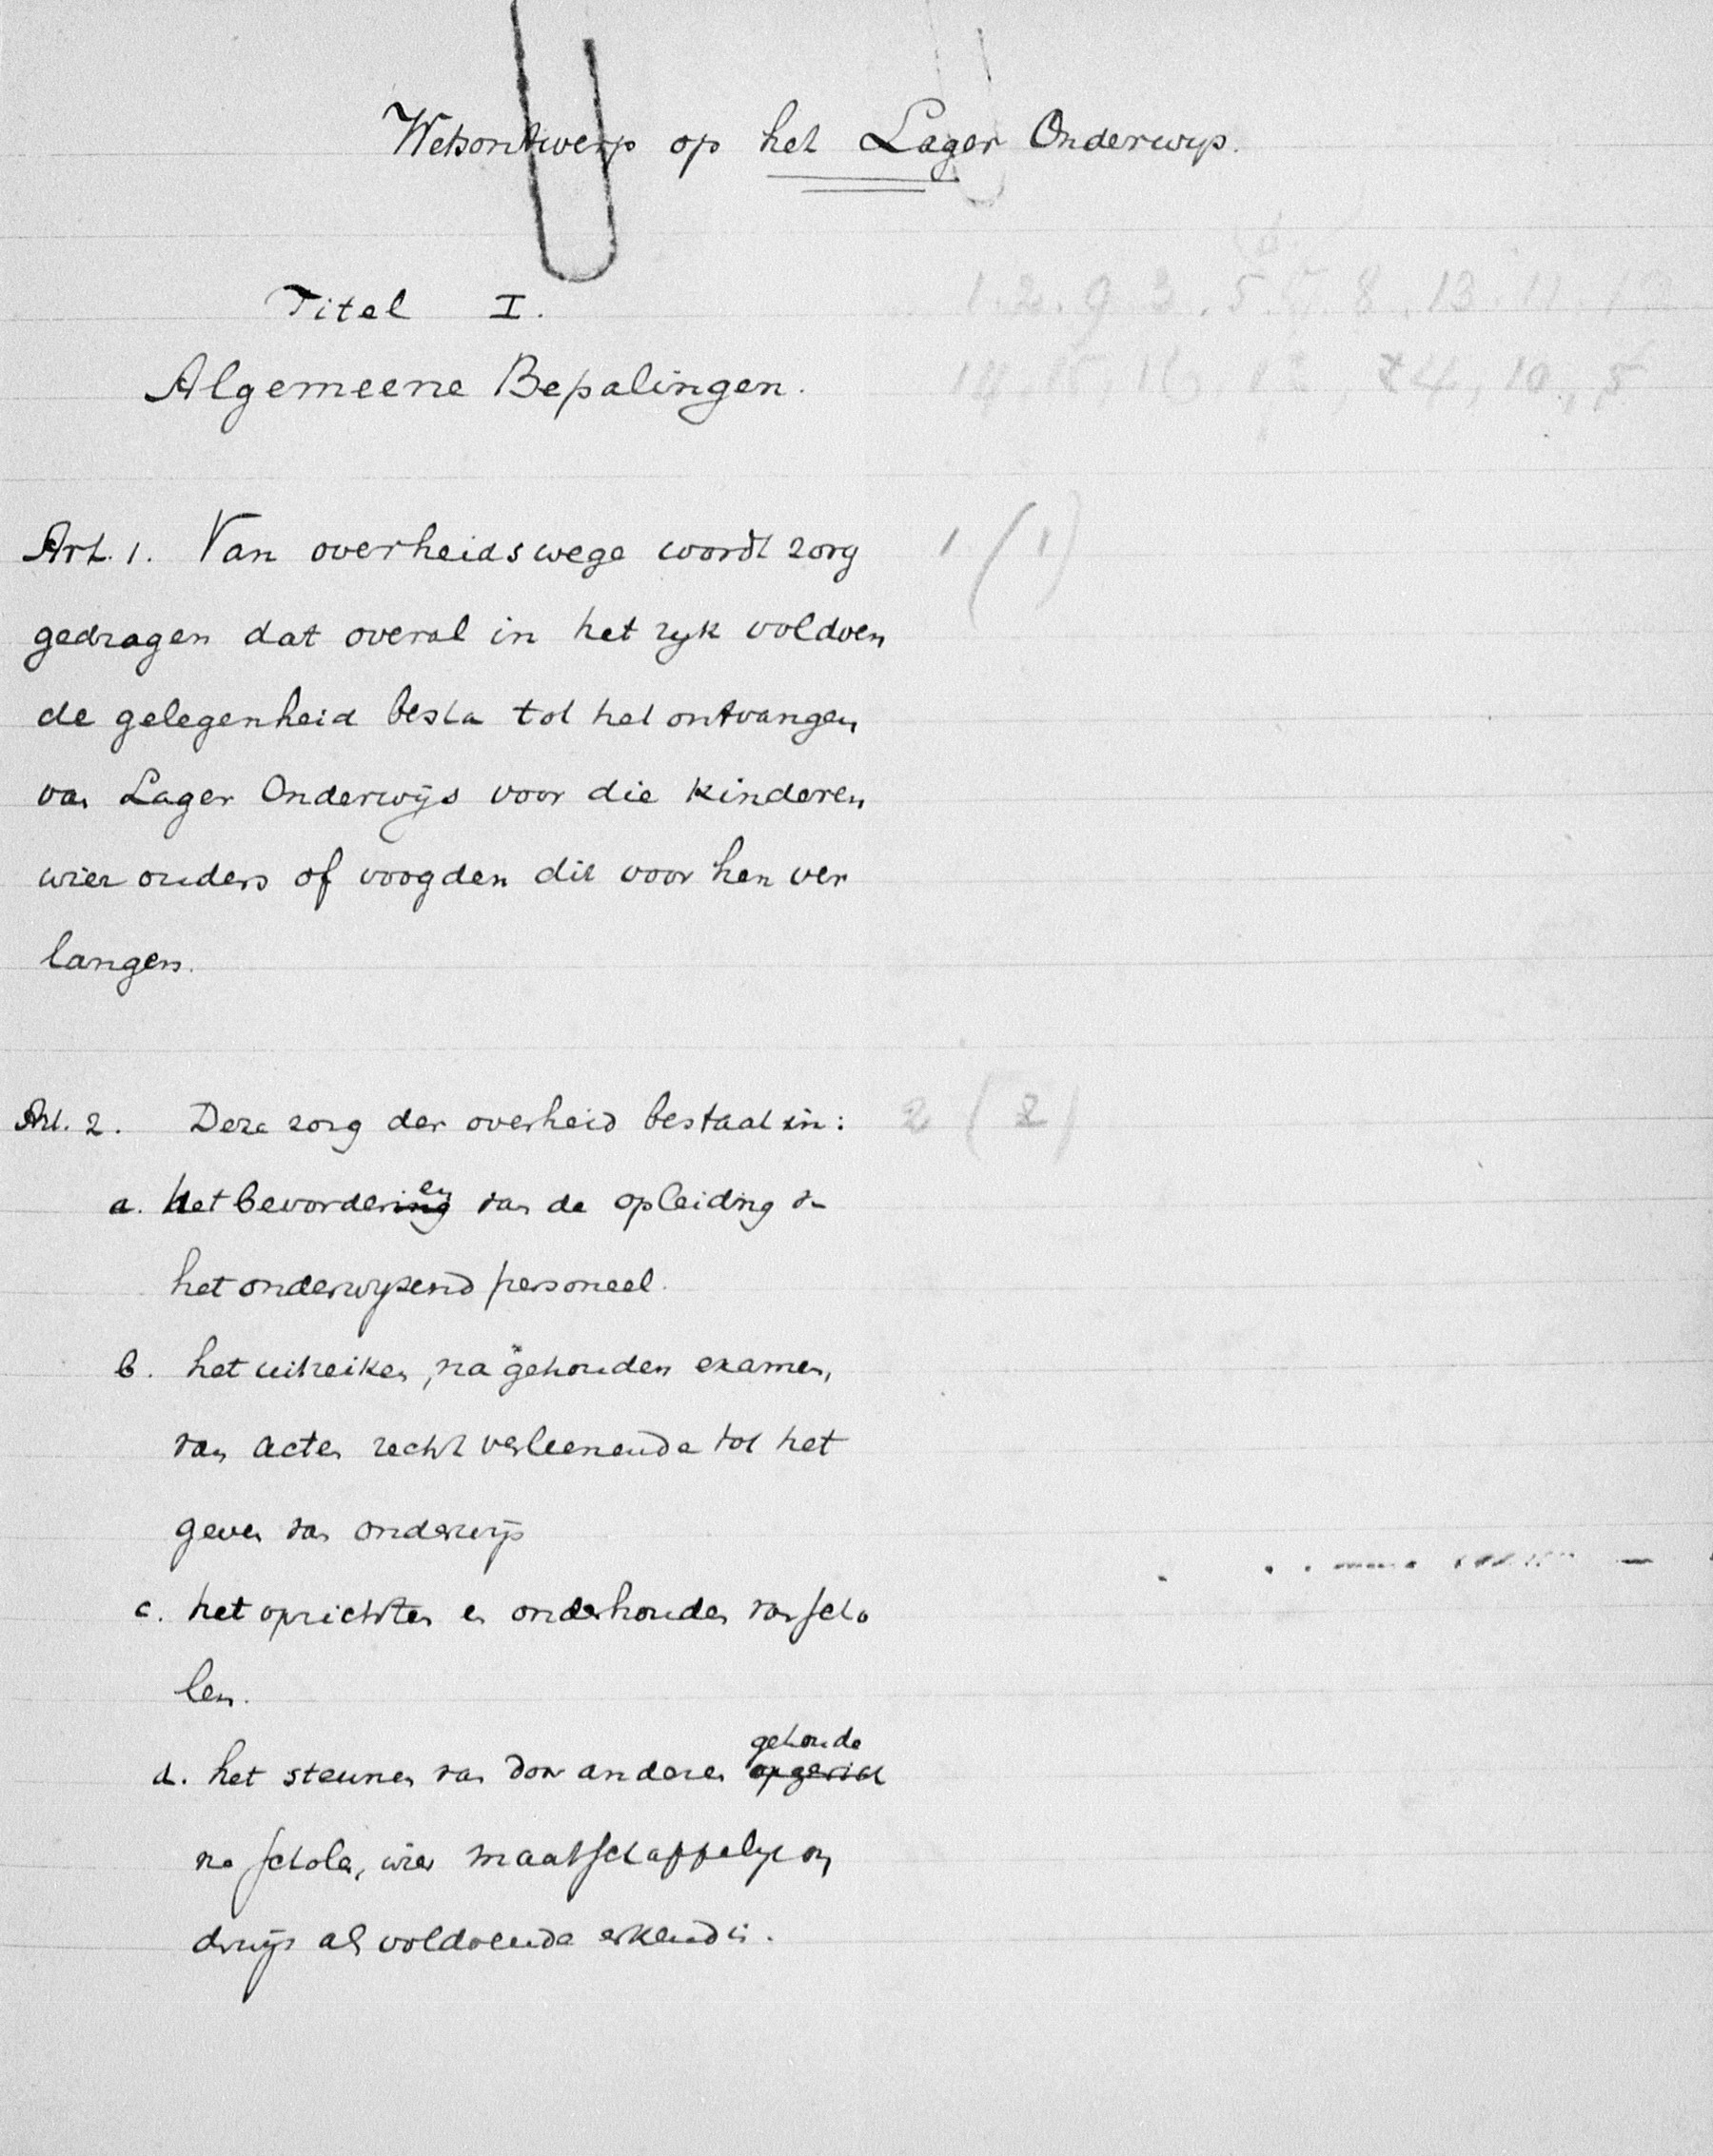 Wetsontwerp op het Lager Onderwijs.
Titel I.
Algemeene Bepalingen.
Art. 1. Van overheidswege wordt zorg
1 (1)
gedragen dat overal in het rijk voldoen
de gelegenheid besta tot het ontvangen
van Lager Onderwijs voor die kinderen
wier ouders of voogden dit voor hen ver
langen.
Art. 2. Deze zorg der overheid bestaat in:
2 (2)
a. het bevorderen van de opleiding v
het onderwijzend personeel.
b. het uitreiken, na gehouden examen,
van acten recht verleenende tot het
geven van onderwijs
c. het oprichten en onderhouden van scho
len.
gehoude
d. het steunen van door anderen opgerich
ne scholen, wier maatschappelijk on
drwijs als voldoende erkend is.